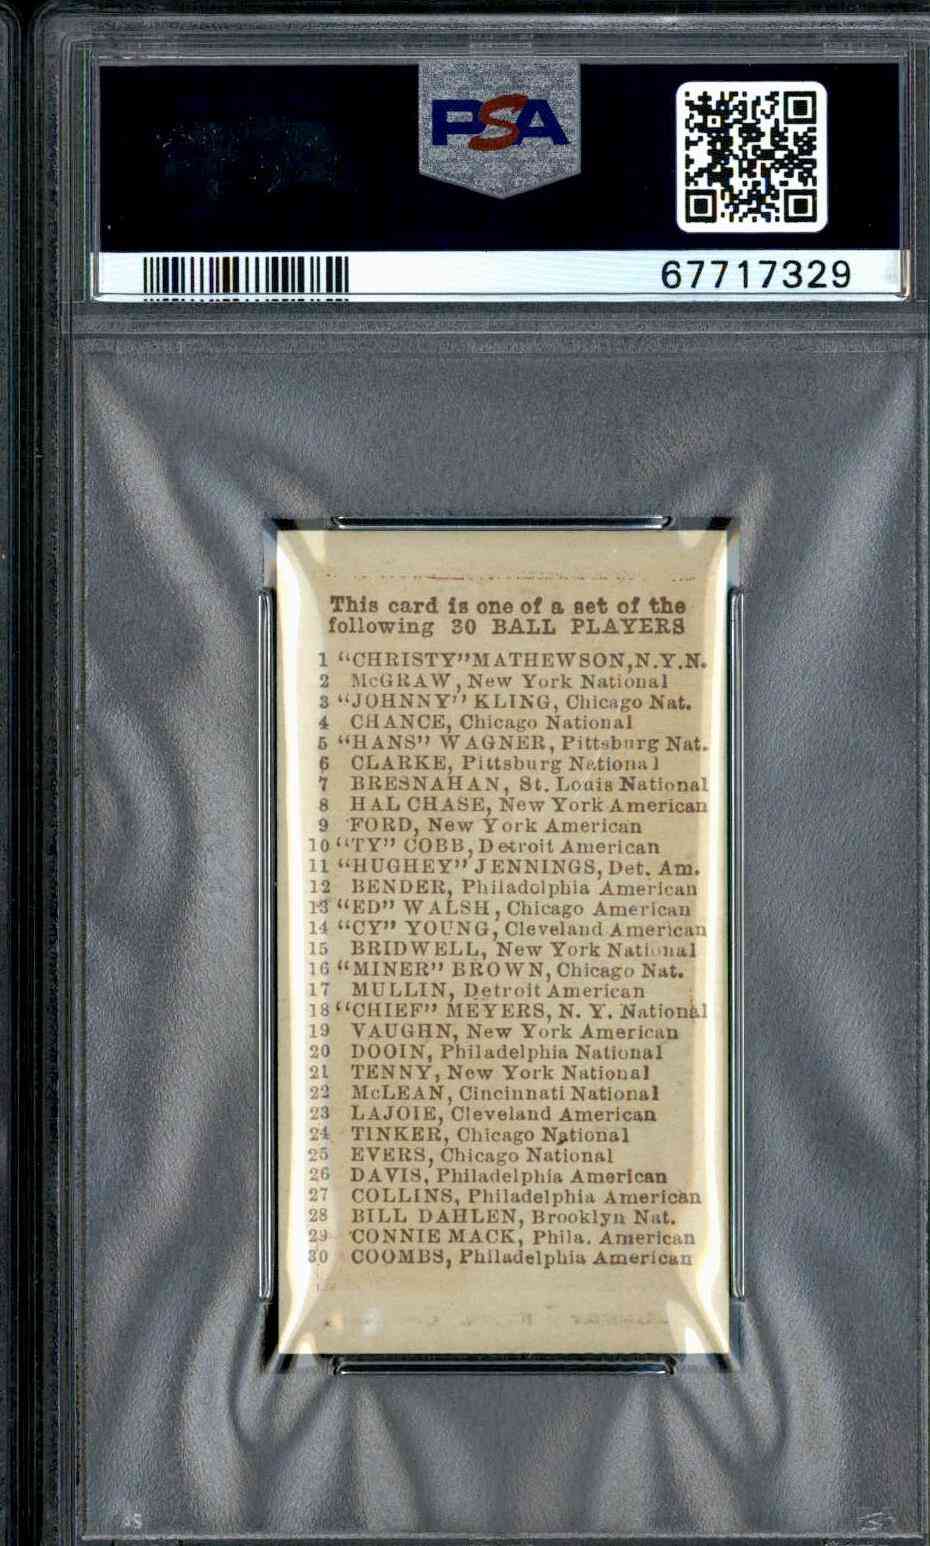 PSA
67717329
This card is one of a set of the
following 30 BALL PLAYERS
1 “CHRISTY” MATHEWSON, N.Y.N.
2 McGRAW, New York National
3 “JOHNNY” KLING, Chicago Nat.
4 CHANCE, Chicago National
5 “HANS” WAGNER, Pittsburg Nat.
6 CLARKE, Pittsburg National
7 BRESNAHAN, St. Louis National
8 HAL CHASE, New York American
9 FORD, New York American
10 “TY” COBB, Detroit American
11 “HUGHEY” JENNINGS, Det. Am.
12 BENDER, Philadelphia American
13 “ED” WALSH, Chicago American
14 “CY” YOUNG, Cleveland American
15 BRIDWELL, New York National
16 “MINER” BROWN, Chicago Nat.
17 MULLIN, Detroit American
18 “CHIEF” MEYERS, N. Y. National
19 VAUGHN, New York American
20 DOOIN, Philadelphia National
21 TENNY, New York National
22 McLEAN, Cincinnati National
23 LAJOIE, Cleveland American
24 TINKER, Chicago National
25 EVERS, Chicago National
26 DAVIS, Philadelphia American
27 COLLINS, Philadelphia American
28 BILL DAHLEN, Brooklyn Nat.
29 CONNIE MACK, Phila. American
30 COOMBS, Philadelphia American